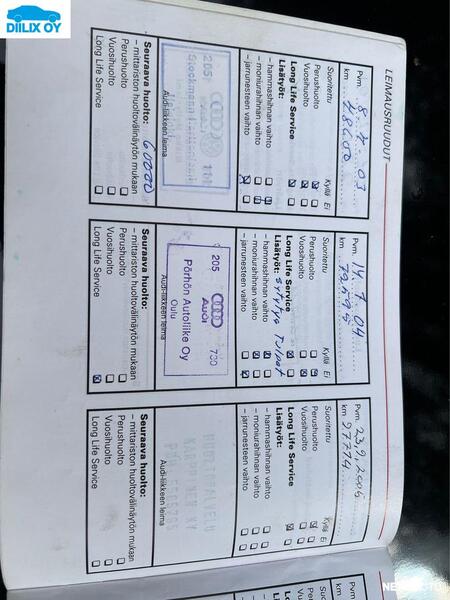 DIILIX OY
LEIMAUSRUUDUT
Pvm. 8.7.03
km
Suoritettu Kyllä Ei
Perushuolto
Vuosihuolto
Long Life Service
Lisätyöt:
– hammashihnan vaihto
– moniurahihnan vaihto
– jarrunesteen vaihto
205 111
Audi-liikkeen leima
Seuraava huolto: 60000
– mittariston huoltovälinäytön mukaan
Perushuolto
Vuosihuolto
Long Life Service
Pvm. 14.7.04
km
Suoritettu Kyllä Ei
Perushuolto
Vuosihuolto
Long Life Service
Lisätyöt: Sytytys Tulpat
– hammashihnan vaihto
– moniurahihnan vaihto
– jarrunesteen vaihto
205 Audi 730
Pörhön Autoliike Oy
Oulu
Audi-liikkeen leima
Seuraava huolto:
– mittariston huoltovälinäytön mukaan
Perushuolto
Vuosihuolto
Long Life Service
Pvm. 23.9.2006
km 97774
Suoritettu Kyllä Ei
Perushuolto
Vuosihuolto
Long Life Service
Lisätyöt:
– hammashihnan vaihto
– moniurahihnan vaihto
– jarrunesteen vaihto
Audi-liikkeen leima
Seuraava huolto:
– mittariston huoltovälinäytön mukaan
Perushuolto
Vuosihuolto
Long Life Service